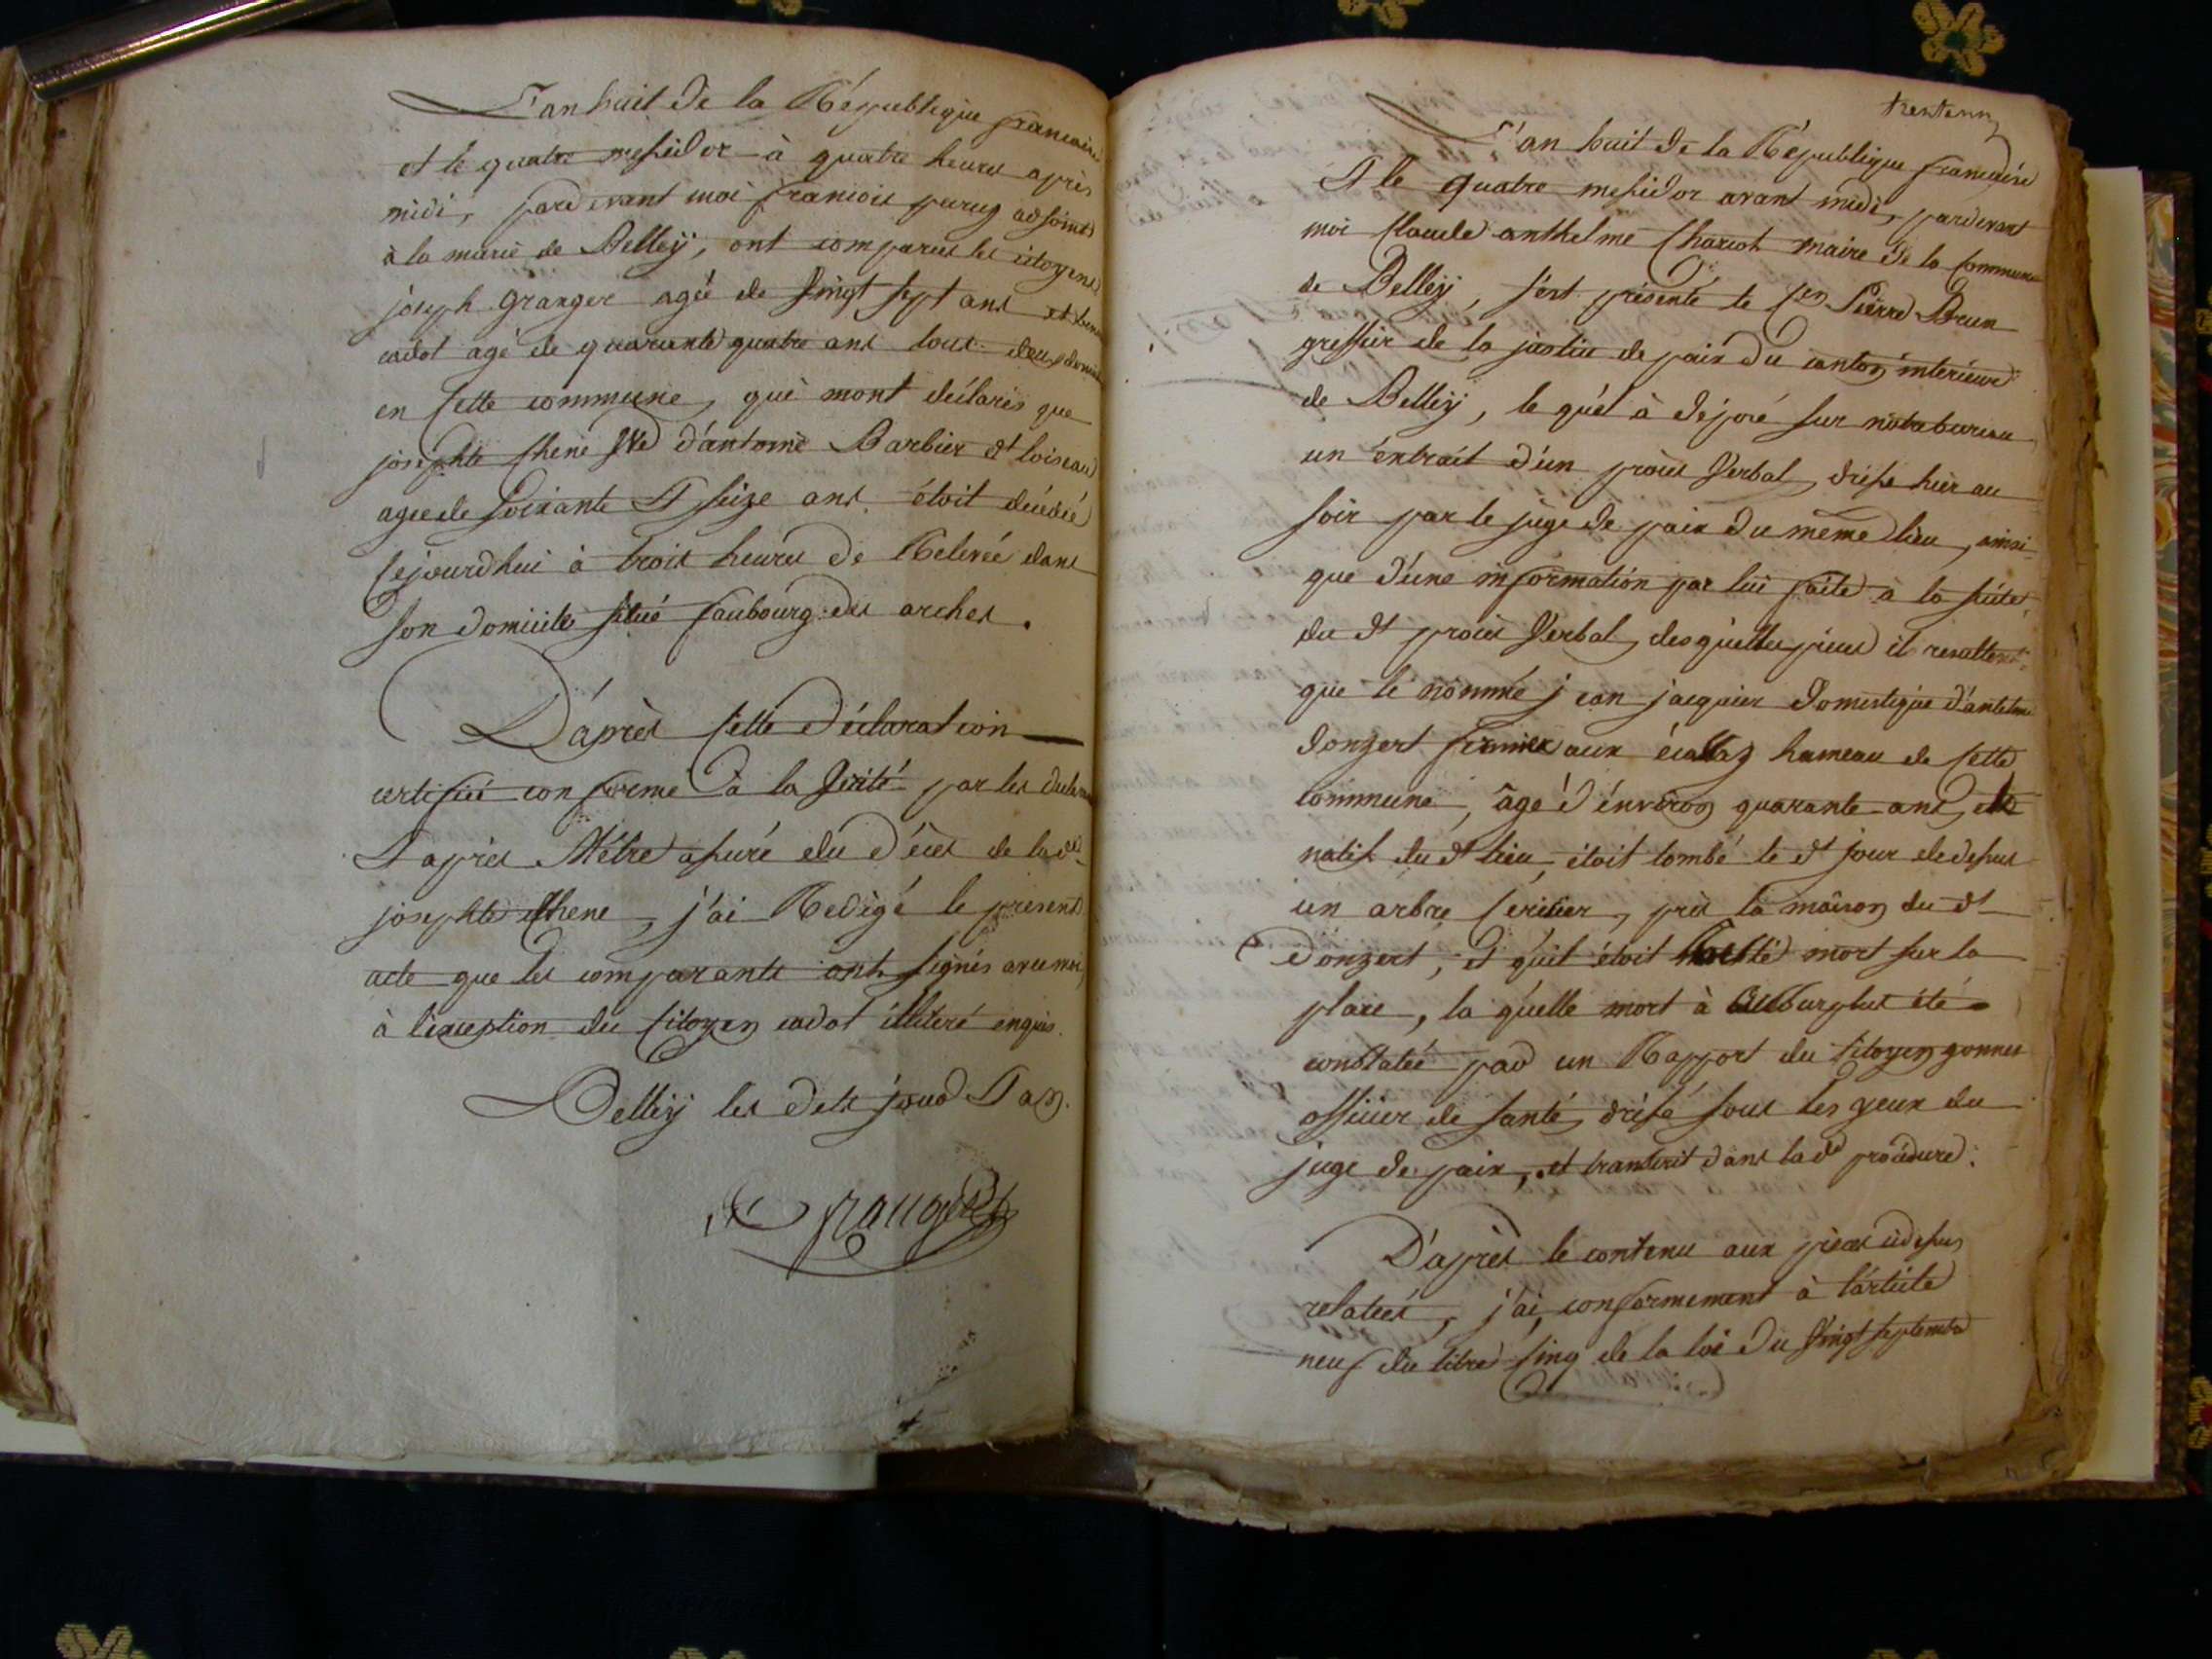 L'an huit de la République francaise
et le quatre messidor à quatre heures après
midi, pardevant moi francois peruz adjoint
à la mairie de Belleÿ, ont comparus les citoyens
joseph Granger agée de Vingt sept ans et
cadot agé de quarante quatre ans tous deux
en Cette commune, qui mont déclarés que
josephte Chene Vve d'antoine Barbier dt loiseau
agée de Soixante et seize ans, étoit décédée
Cejourdhui à trois heures de Relevée dans
son domicile situé faubourg des arches.
D'après Cette déclaration
certifiée conforme à la Vérité par les
et après M'être assuré du décès de lad.
josephte Chene, j'ai Redigé le présent
acte que les comparants ont signés avec moi,
à l'exception du Citoyen cadot illiteré enquis.
Belleÿ les dits jour et an.
granger
trente un
L'an huit de la République francaise
Et le quatre messidor avant midi, pardevant
moi Claude anthelme Charcot maire de la Commune
de Belleÿ, s'est présenté le Cen Pierre Brun
greffier de la justice de paix du canton intérieur
de Belleÿ, le quel à déposé sur notre bureau
un extrait d'un procès Verbal, dréssé hier au
soir par le juge de paix du même lieu, ainsi
que d'une information par lui faite à la suite
du dt procès Verbal, desquelles pièces il resulte
que le nommé jean jacquier domestique d'antelme
donzert fermier aux écassaz hameau de Cette
Commune, âgé d'énviron quarante ans,
natif du dt lieu, étoit tombé le dt jour de dessus
un arbre Cérisier, près la maison du dt
donzert, et qu'il étoit Resté mort sur la
place, la quelle mort à ausurplus été
constatée par un Rapport du Citoyen gonnet
officier de santé, dréssé sous les yeux du
juge de paix, et transcrit dans lade procédure.
D'après le contenu aux pièces cidessus
relatées, j'ai, conformement à l'article
neuf du titre Cinq de la loi du Vingt septembre